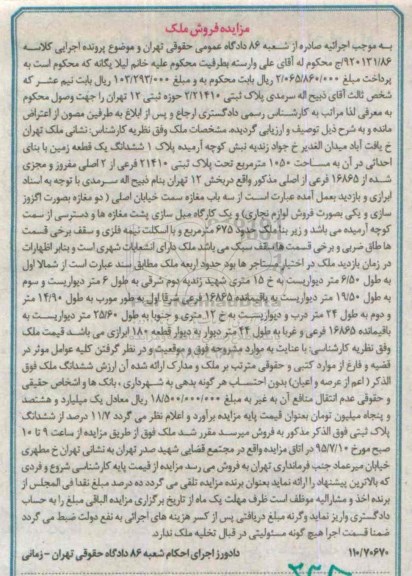 مزایده فروش ملک
به موجب اجرائیه صادره از شعبه ۸۶ دادگاه عمومی حقوقی تهران و موضوع پرونده اجرایی کلاسه
۹۲۰۱۲۱/۸۶/ج محکوم له آقای علی وارسته بطرفیت محکوم علیه خانم لیلا یگانه که محکوم است به
پرداخت مبلغ ۲/۰۶۵/۸۶۰/۰۰۰ ریال بابت محکوم به و مبلغ ۱۰۳/۲۹۳/۰۰۰ ریال بابت نیم عشر که
شخص ثالث آقای ذبیح اله سرمدی پلاک ثبتی ۲/۲۱۴۱۰ حوزه ثبتی ۱۲ تهران را جهت وصول محکوم
به معرفی لذا مراتب به کارشناس رسمی دادگستری ارجاع و پس از ابلاغ به طرفین مصون از اعتراض
مانده و به شرح ذیل توصیف و ارزیابی گردیده. مشخصات ملک وفق نظریه کارشناس: نشانی ملک تهران
خ یافت آباد میدان الغدیر خ جواد زندیه نبش کوچه آرمیده پلاک ۱ ششدانگ یک قطعه زمین با بنای
احداثی در آن به مساحت ۱۰۵۰ مترمربع تحت پلاک ثبتی ۲۱۴۱۰ فرعی از ۲ اصلی مفروز و مجزی
شده از ۱۶۸۶۵ فرعی از اصلی مذکور واقع در بخش ۱۲ تهران بنام ذبیح اله سرمدی با توجه به اسناد
ابرازی و بازدید بعمل آمده عبارت است از سه باب مغازه سمت خیابان اصلی (دو مغازه بصورت اگزوز
سازی و یکی بصورت فروش لوازم نجاری) و یک کارگاه مبل سازی پشت مغازه ها و دسترسی از سمت
کوچه آرمیده می باشد و زیر بنا ملک حدود ۶۷۵ مترمربع و با اسکلت نیمه فلزی و سقف برخی قسمت
ها طاق ضربی و برخی قسمت ها سقف سبک می باشد ملک دارای انشعابات شهری است و بنابر اظهارات
در زمان بازدید ملک در اختیار مستاجر ها بود حدود اربعه ملک مطابق سند عبارت است از شمالا اول
به طول ۶/۵۰ متر دیواریست به خ ۱۵ متری شهید زندیه دوم شرقی به طول ۶ متر دیواریست و سوم
به طول ۱۹/۵۰ متر دیواریست به باقیمانده ۱۶۸۶۵ فرعی شرقا اول به طور مورب به طول ۱۴/۹۰ متر
و دوم به طول ۲۴ متر درب و دیواریست به خ ۱۲ متری و جنوبا به طول ۲۵/۶۰ متر دیواریست به
باقیمانده ۱۶۸۶۵ فرعی و غربا به طول ۴۴ متر دیوار به دیوار قطعه ۱۸۰ ابرازی می باشد. قیمت ملک
وفق نظریه کارشناسی: با عنایت به موارد مشروحه فوق و موقعیت و در نظر گرفتن کلیه عوامل موثر در
قضیه و فارغ از موارد کتبی و حقوقی مترتب بر ملک و مدارک ارائه شده آن ارزش ششدانگ ملک فوق
الذکر (اعم از عرصه و اعیان) بدون احتساب هر گونه بدهی به شهرداری، بانک ها و اشخاص حقیقی
و حقوقی عدم انتقال منافع آن به غیر به مبلغ ۱۸/۵۰۰/۰۰۰/۰۰۰ ریال معادل یک میلیارد و هشتصد
و پنجاه میلیون تومان بعنوان قیمت پایه مزایده برآورد و اعلام نظر می گردد ۱۱/۷ درصد از ششدانگ
پلاک ثبتی فوق الذکر مذکور به فروش میرسد مقرر شد ملک فوق از طریق مزایده از ساعت ۹ تا ۱۰
صبح مورخ ۹۵/۷/۱۰ در اتاق مزایده واقع در مجتمع قضایی شهید صدر تهران به نشانی تهران خ مطهری
خیابان میرعماد جنب فرمانداری تهران به فروش می رسد مزایده از قیمت پایه کارشناسی شروع و فردی
که بالاترین پیشنهاد را ارائه نماید بعنوان برنده مزایده تلقی می گردد ده درصد مبلغ نقدا فی المجلس از
برنده اخذ و مشارالیه موظف است ظرف مهلت یک ماه از تاریخ برگزاری مزایده الباقی مبلغ را به حساب
دادگستری واریز نماید وگرنه مبلغ دریافتی پس از کسر هزینه های اجرائی به نفع دولت ضبط می گردد
ضمنا قسمت اجرا هیچ گونه مسئولیتی در قبال تخلیه ملک ندارد.
۱۱۰/۷۰۶۷۰ دادورز اجرای احکام شعبه ۸۶ دادگاه حقوقی تهران - زمانی